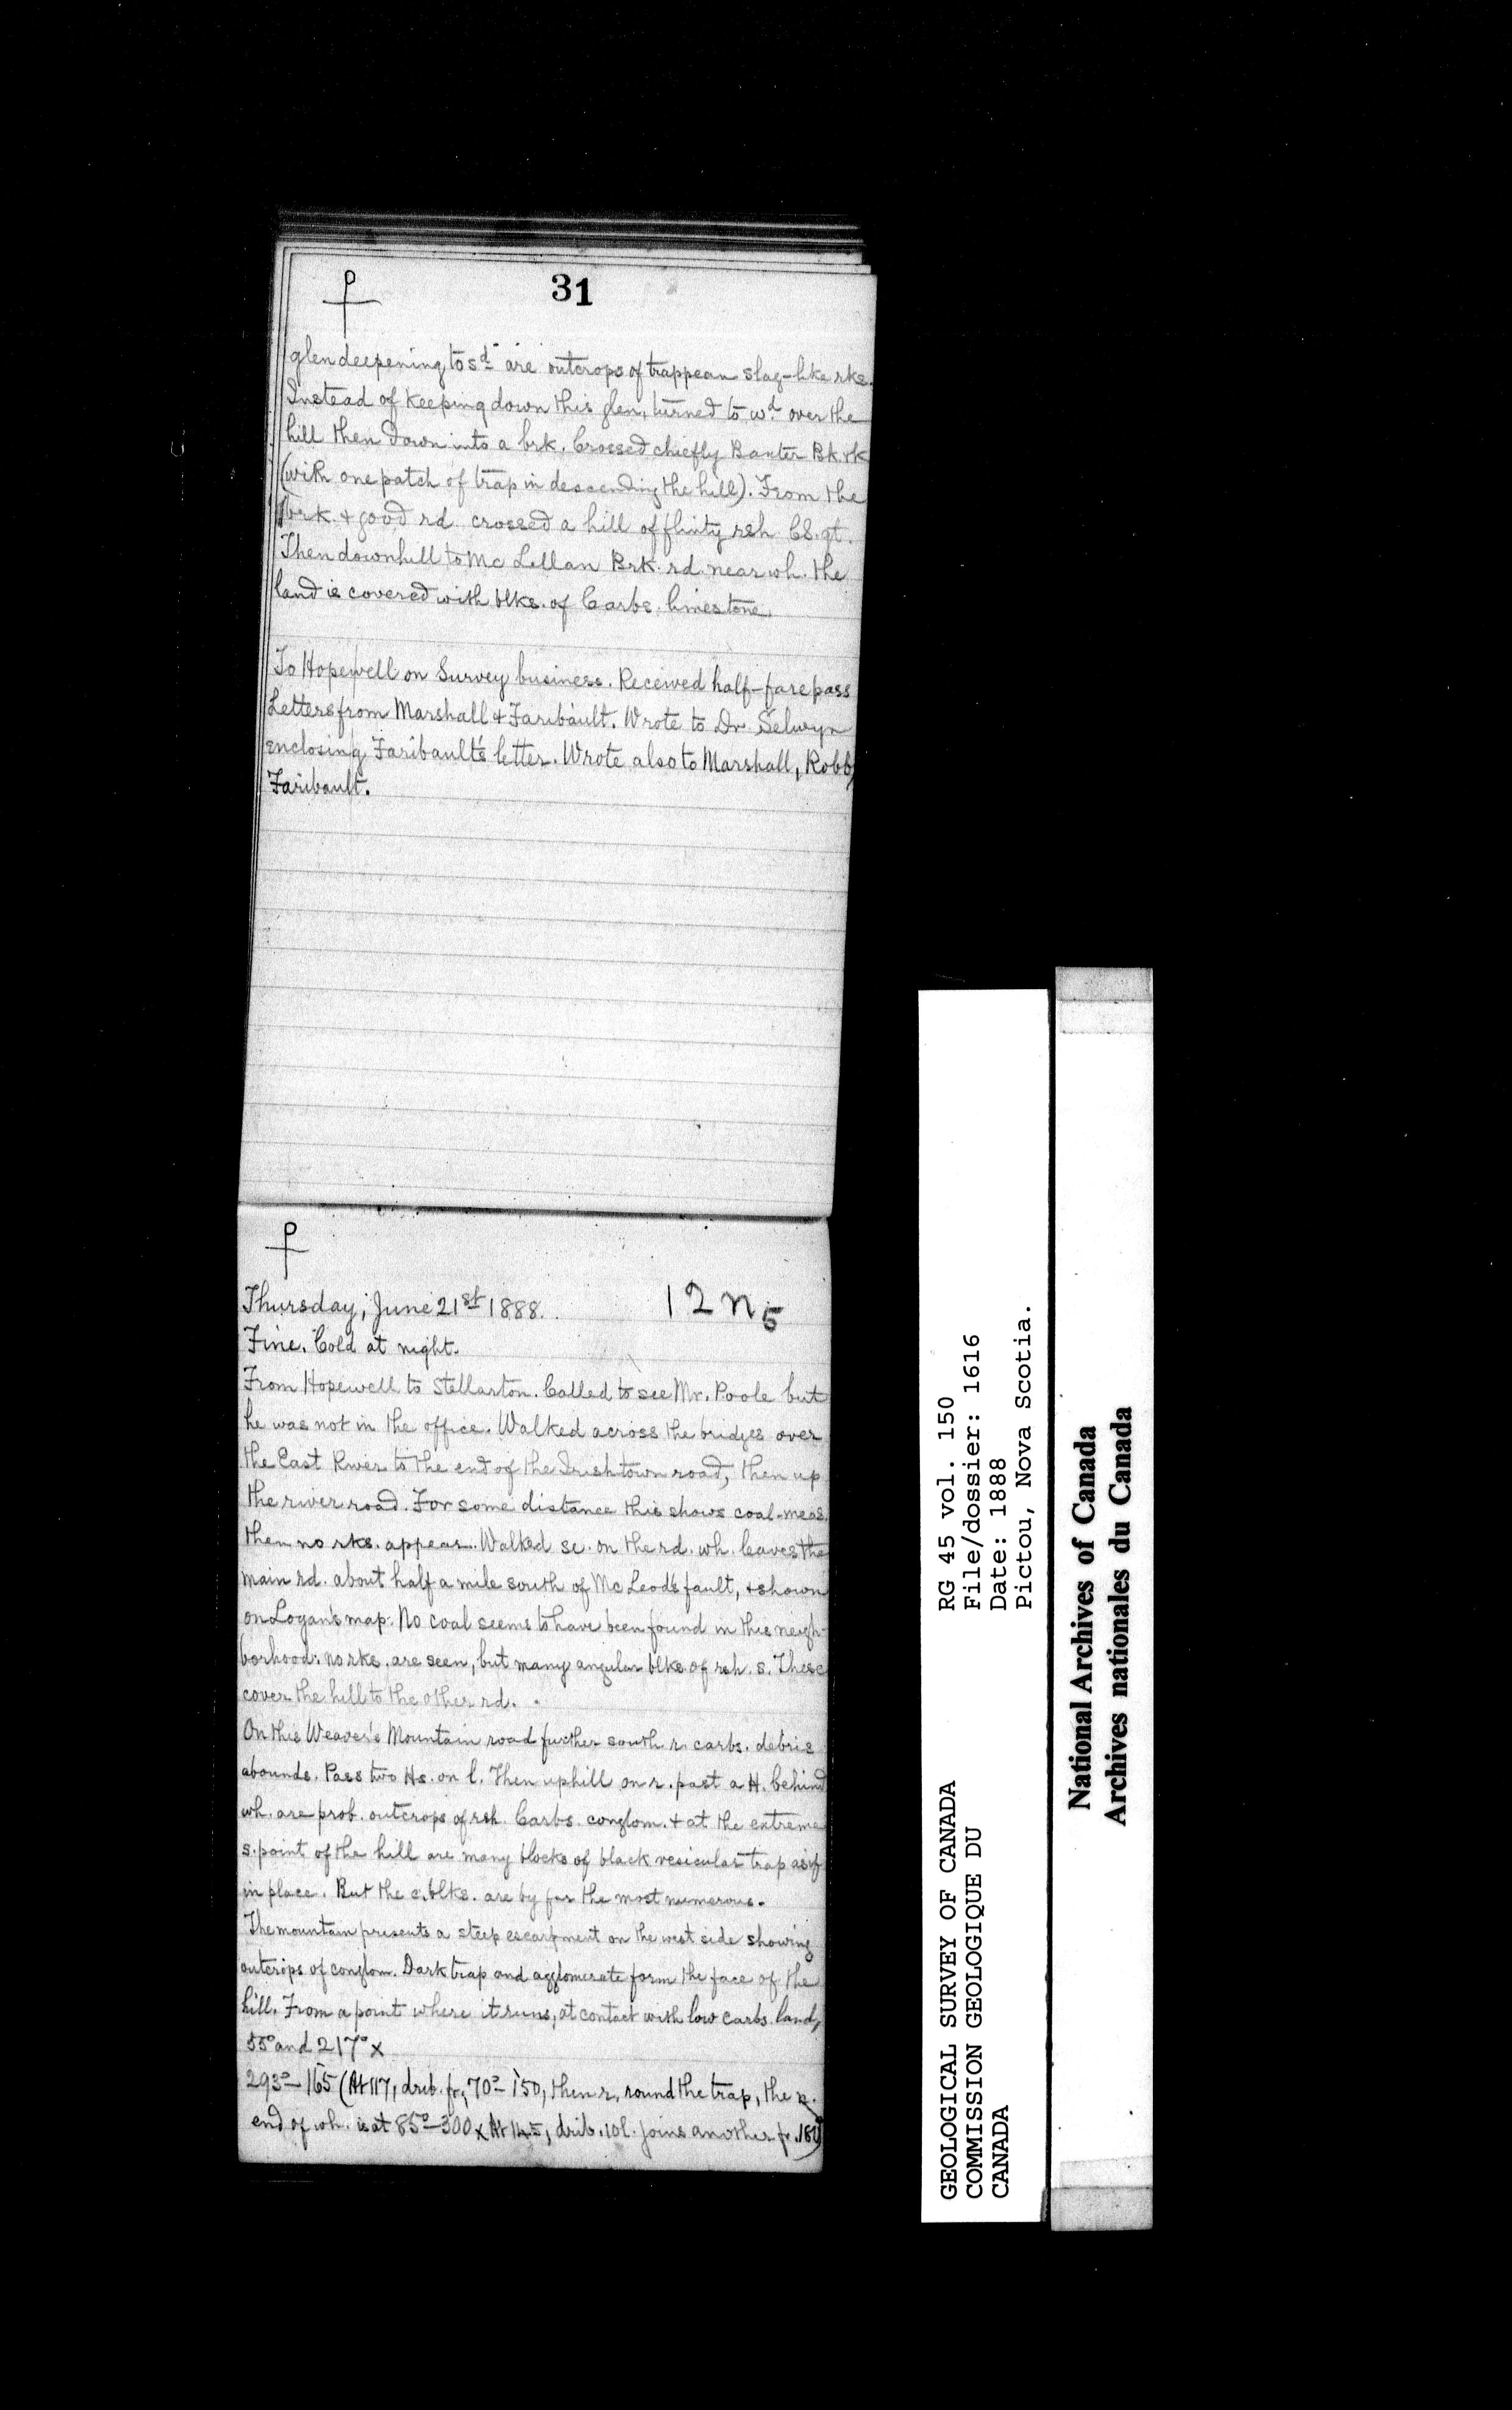 31
glen deepening to sd are outcrops of trappean slag-like rks.
Instead of keeping down this glen, turned to wd over the
hill then down into a brk. Crossed chiefly Baxter Bk. rk
(with one patch of trap in descending the hill). From the
brk. + good rd crossed a hill of flinty rsh C.S. qt.
Then downhill to McLellan Brk. rd. near wh. the
land is covered with blks. of Carbs. limestone.
To Hopewell on Survey business. Received half-fare pass
Letters from Marshall & Faribault. Wrote to Dr. Selwyn
enclosing Faribault's letter. Wrote also to Marshall, Robb,
Faribault.
Thursday, June 21st 1888.
12 n 5
Fine. Cold at night.
From Hopewell to Stellarton. Called to see Mr. Poole but
he was not in the office. Walked across the bridges over
the East River to the end of the Irishtown road, then up
the river road. For some distance this shows coal-meas.
then no rks. appear. Walked se. on the rd. wh. leaves the
main rd. about half a mile south of McLeod's fault, + shown
on Logan's map. No coal seems to have been found in this neigh-
borhood: no rks. are seen, but many angular blks. of rsh. s. These
cover the hill to the other rd.
On this Weaver's Mountain road further south r. carbs. debris
abounds. Pass two Hs. on l. Then uphill on r. past a H. behind
wh. are prob. outcrops of rsh. Carbs. conglom. + at the extreme
s. point of the hill are many blocks of black vesicular trap as if
in place. But the c. blks. are by far the most numerous.
The mountain presents a steep escarpment on the west side showing
outcrops of conglom. Dark trap and agglomerate form the face of the
hill. From a point where it runs, at contact with low carbs. land,
55° and 217° x
293°-165 (At 117, drib. fr. 70°-150, then r. round the trap, the n.
end of wh. is at 85°-300 x At 145, drib. 10 l. joins another fr.
GEOLOGICAL SURVEY OF CANADA
COMMISSION GEOLOGIQUE DU
CANADA
RG 45 vol. 150
File/dossier: 1616
Date: 1888
Pictou, Nova Scotia.
National Archives of Canada
Archives nationales du Canada